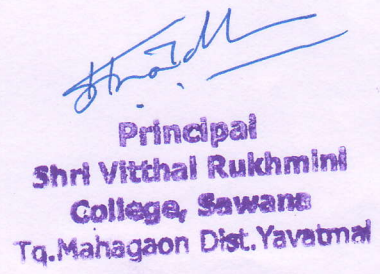 Principal
Shri Vitthal Rukhmini
College, Sawana
Tq.Mahagaon Dist.Yavatmal